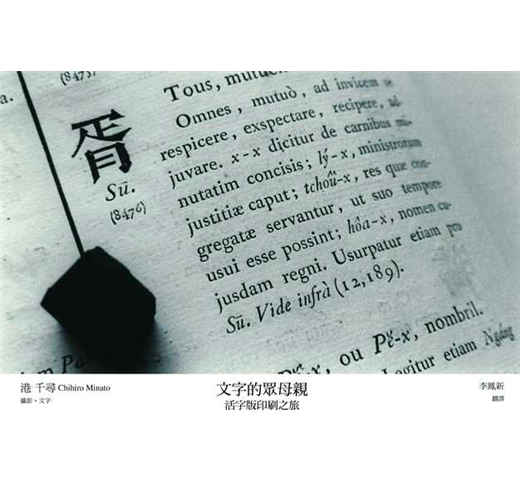 a.
(8475)
胥
Sū.
(8476)
Tous,
Omnes, mutuò, ad invicem se
respicere, exspectare, recipere, ad-
juvare. x-x dicitur de carnibus mi-
nutatim concisis; lý-x, ministrorum
justitiæ caput; tchoû-x, res quæ con-
gregatæ servantur, ut suo tempore
usui esse possint; hôa-x, nomen cu-
jusdam regni. Usurpatur etiam pro
Sū. Vide infrà (12,189).
ou Pý-x, nombril.
etiam
港 千尋 Chihiro Minato
攝影・文字
文字的眾母親
活字版印刷之旅
李鳳新
翻譯